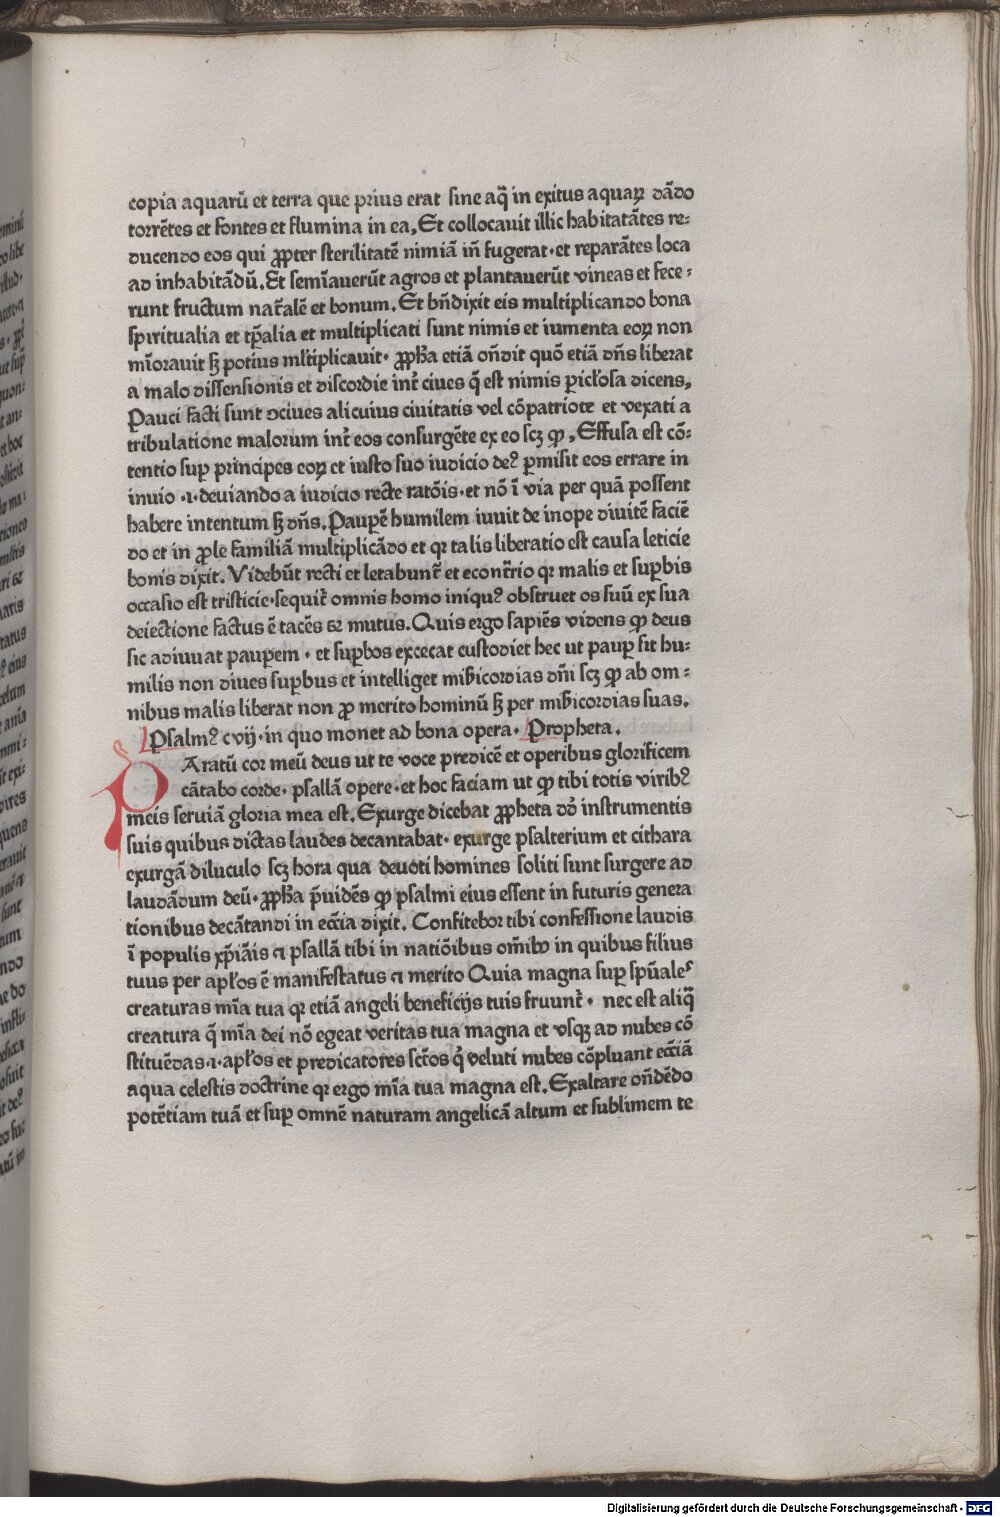 copia aquarū et terra que prius erat sine aq̄ in exitus aquaꝝ dādo
torrētes et fontes et flumina in ea, Et collocauit illic habitatātes re⸗
ducendo eos qui ꝓpter sterilitatē nimiā in̄ fugerat·et reparātes loca
ad inhabitādū. Et semīauerūt agros et plantauerūt vineas et fece⸗
runt fructum nat̄alē et bonum. Et bn̄dixit eis multiplicando bona
spiritualia et tp̄alia et multiplicati sunt nimis et iumenta eoꝝ non
mīorauit ꜩ potius ml̄tiplicauit· ꝓph̄a etiā on̄dit quō etiā dn̄s liberat
a malo dissensionis et discordie int̄ ciues q̄ est nimis ꝑicl̄osa dicens,
Pauci facti sunt ↄciues alicuius ciuitatis vel cōpatriote et vexati a
tribulatione malorum int̄ eos consurgēte ex eo scꝫ ꝙ , Effusa est cō⸗
tentio suꝑ principes eoꝝ et iusto suo iudicio deꝰ ꝑmisit eos errare in
inuio ·i·deuiando a iudicio recte ratōis·et nō ī via per quā possent
habere intentum ꜩ dn̄s. Pauꝑē humilem iuuit de inope diuitē faciē
do et in ꝓle familiā multiplicādo et qꝛ talis liberatio est causa leticie
bonis dixit. Videbūt recti et letabunt̄ et econt̄rio qꝛ malis et suꝑbis
occasio est tristicie·sequit̄ omnis homo iniquꝰ obstruet os suū ex sua
deiectione factus ē tacēs ⁊ mutus. Quis ergo sapiēs videns ꝙ deus
sic adiuuat pauꝑem · et suꝑbos excecat custodiet hec ut pauꝑ sit hu⸗
milis non diues suꝑbus et intelliget mīsicordias dn̄i scꝫ ꝙ ab om⸗
nibus malis liberat non ꝓ merito hominū ꜩ per mīsicordias suas.
Psalmꝰ cvij·in quo monet ad bona opera· Propheta.
PAratū cor meū deus ut te voce predicē et operibus glorificem
cātabo corde· psallā opere·et hoc faciam ut ꝙ tibi totis viribꝰ
meis seruiā gloria mea est. Exurge dicebat ꝓpheta dō instrumentis
suis quibus dictas laudes decantabat· exurge psalterium et cithara
exurgā diluculo scꝫ hora qua deuoti homines soliti sunt surgere ad
laudādum deū·ꝓph̄a p̄uidēs ꝙ psalmi eius essent in futuris genera
tionibus decātandi in ecc̄ia dixit. Confitebor tibi confessione laudis
ī populis xp̄iāis ⁊ psallā tibi in natiōibus om̄ibꝰ in quibus filius
tuus per apl̄os ē manifestatus ⁊ merito Quia magna suꝑ sp̄uales
creaturas mīa tua qꝛ etiā angeli beneficijs tuis fruunt̄ · nec est aliq̄
creatura q̄ mīa dei nō egeat veritas tua magna et vsqꝫ ad nubes cō
stituēdas·i·apl̄os et predicatores sct̄os q̇ veluti nubes cōpluant ecc̄iā
aqua celestis doctrine qꝛ ergo mīa tua magna est. Exaltare on̄dēdo
potētiam tuā et suꝑ omnē naturam angelicā altum et sublimem te
Digitalisierung gefördert durch die Deutsche Forschungsgemeinschaft - DFG